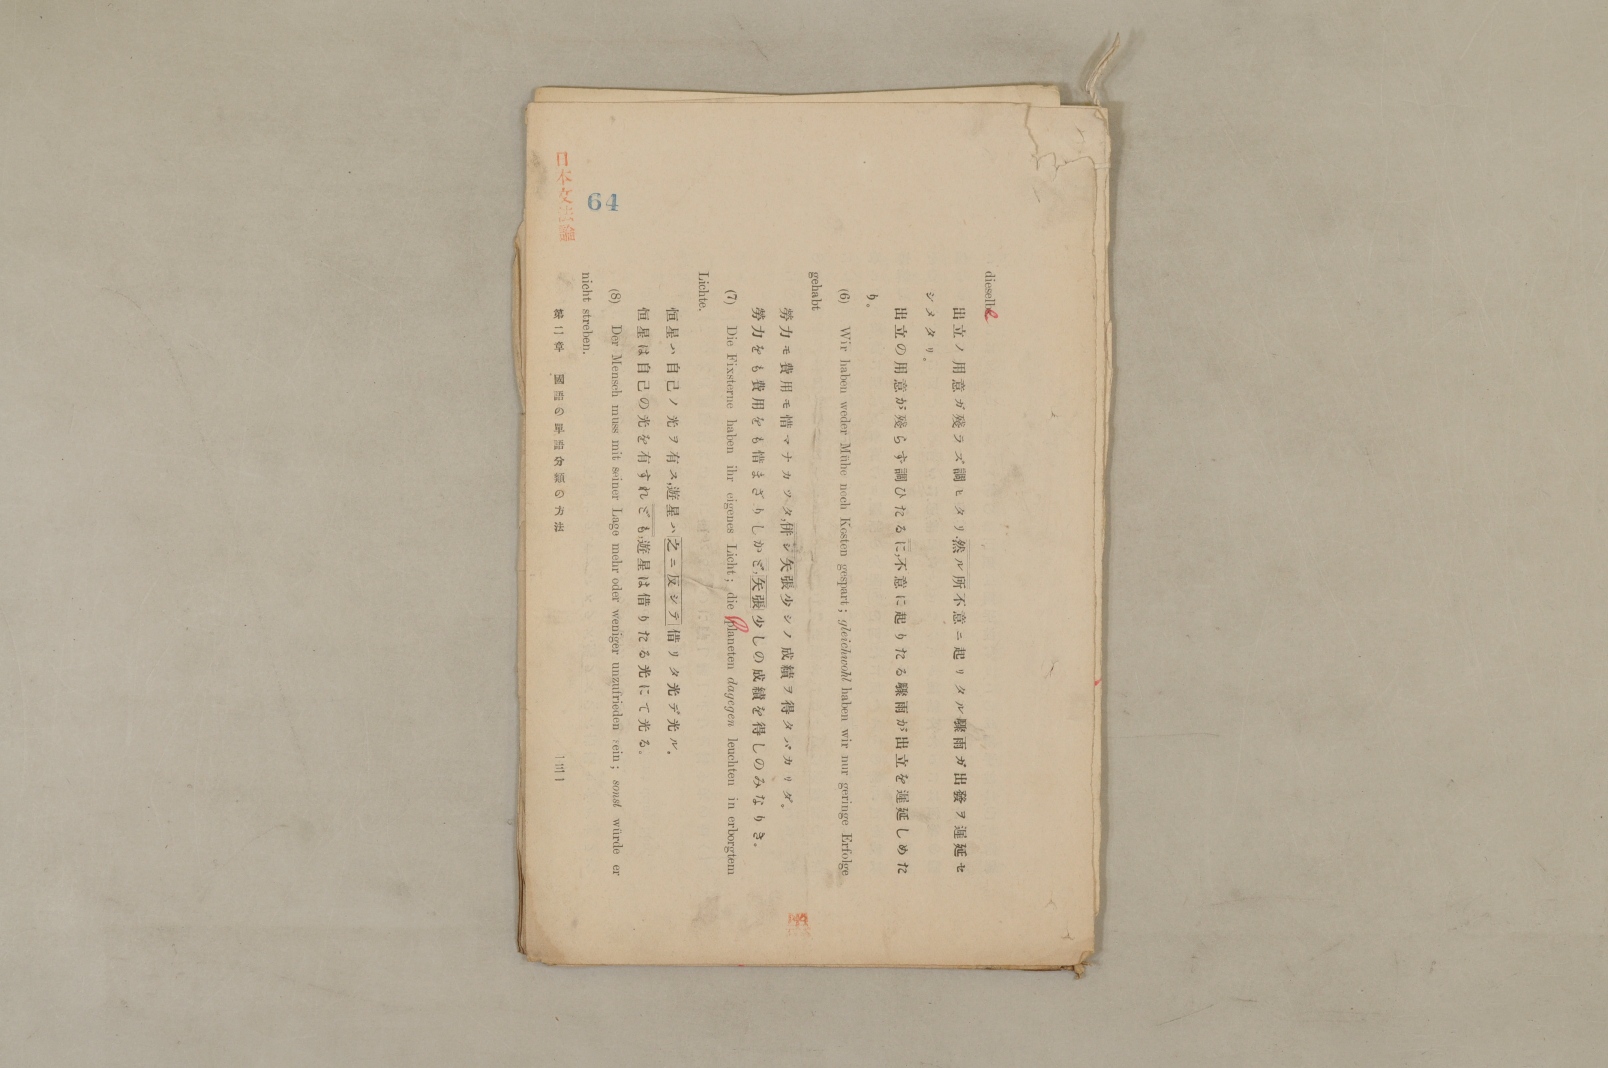 dieselbe
出立ノ用意ガ殘ラズ調ヒタリ、然ル所不意ニ起リタル驟雨ガ出發ヲ遲延セ
シメタリ。
出立の用意が殘らず調ひたるに、不意に起りたる驟雨が出立を遲延しめた
り。
(6) Wir haben weder Mühe noch Kosten gespart; gleichwohl haben wir nur geringe Erfolge
gehabt
勞力モ費用モ惜マナカツタ、併シ矢張少シノ成績ヲ得タバカリダ。
勞力をも費用をも惜まざりしかど、矢張少しの成績を得しのみなりき。
(7) Die Fixsterne haben ihr eigenes Licht; die planeten dagegen leuchten in erborgtem
Lichte.
恒星ハ自己ノ光ヲ有ス、遊星ハ之ニ反シテ借リタ光デ光ル。
恒星は自己の光を有すれども、遊星は借りたる光にて光る。
(8) Der Mensch muss mit seiner Lage mehr oder weniger unzufrieden sein; sonst würde er
nicht streben.
第二章 國語の單語分類の方法
一三一
64
日本文典論